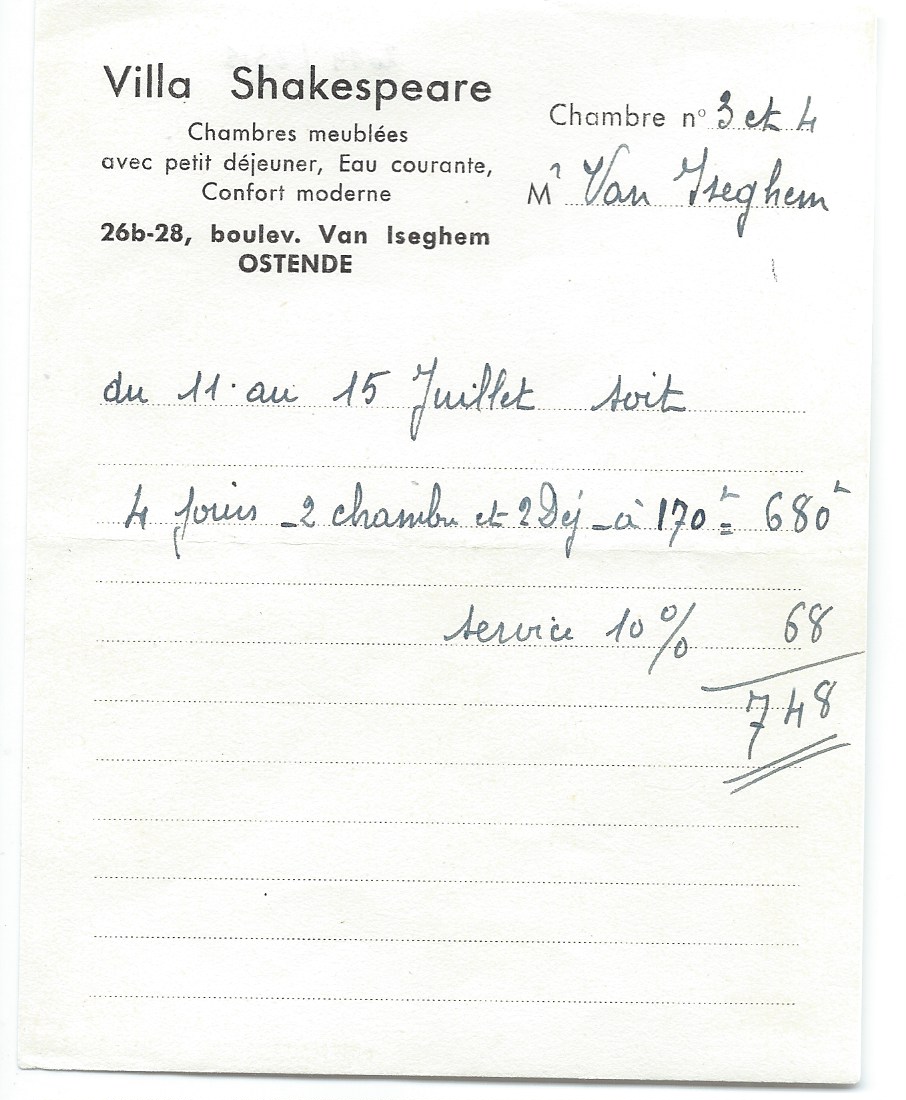 Villa Shakespeare
Chambres meublées
avec petit déjeuner, Eau courante,
Confort moderne
26b-28, boulev. Van Iseghem
OSTENDE
Chambre n° 3 et 4
Mr Van Iseghem
du 11 au 15 Juillet soit
4 jours - 2 chambre et 2 Déj - à 170 = 680
service 10 % 68
748